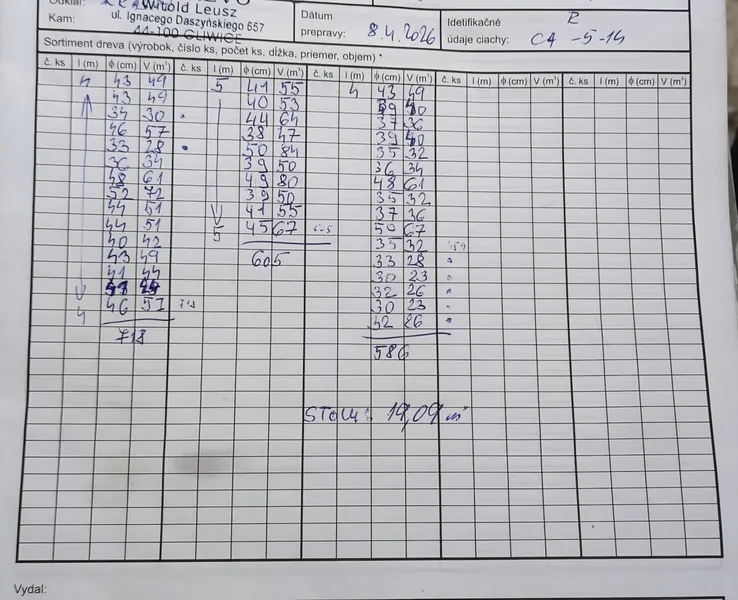 Witold Leusz
Kam: ul. Ignacego Daszyńskiego 657
44-100 GLIWICE
Dátum prepravy: 8.4.2026
Identifikačné údaje ciachy: CA -5-14
Sortiment dreva (výrobok, číslo ks, počet ks, dĺžka, priemer, objem) *
č. ks l (m) ϕ (cm) V (m³) č. ks l (m) ϕ (cm) V (m³) č. ks l (m) ϕ (cm) V (m³) č. ks l (m) ϕ (cm) V (m³) č. ks l (m) ϕ (cm) V (m³)
4 43 49 5 41 55 4 43 49
43 49 40 53
34 30 44 64 37 36
46 57 38 47 39 40
33 28 50 84 35 32
36 34 39 50 36 34
48 61 49 80 48 61
52 72 39 50 35 32
44 51 41 55 37 36
44 51 5 45 67 605 50 67
40 42 35 32
43 49 605 33 28
41 44 30 23
32 26
4 46 57 718 30 23
32 26
718 586
19,09 m³
Vydal: